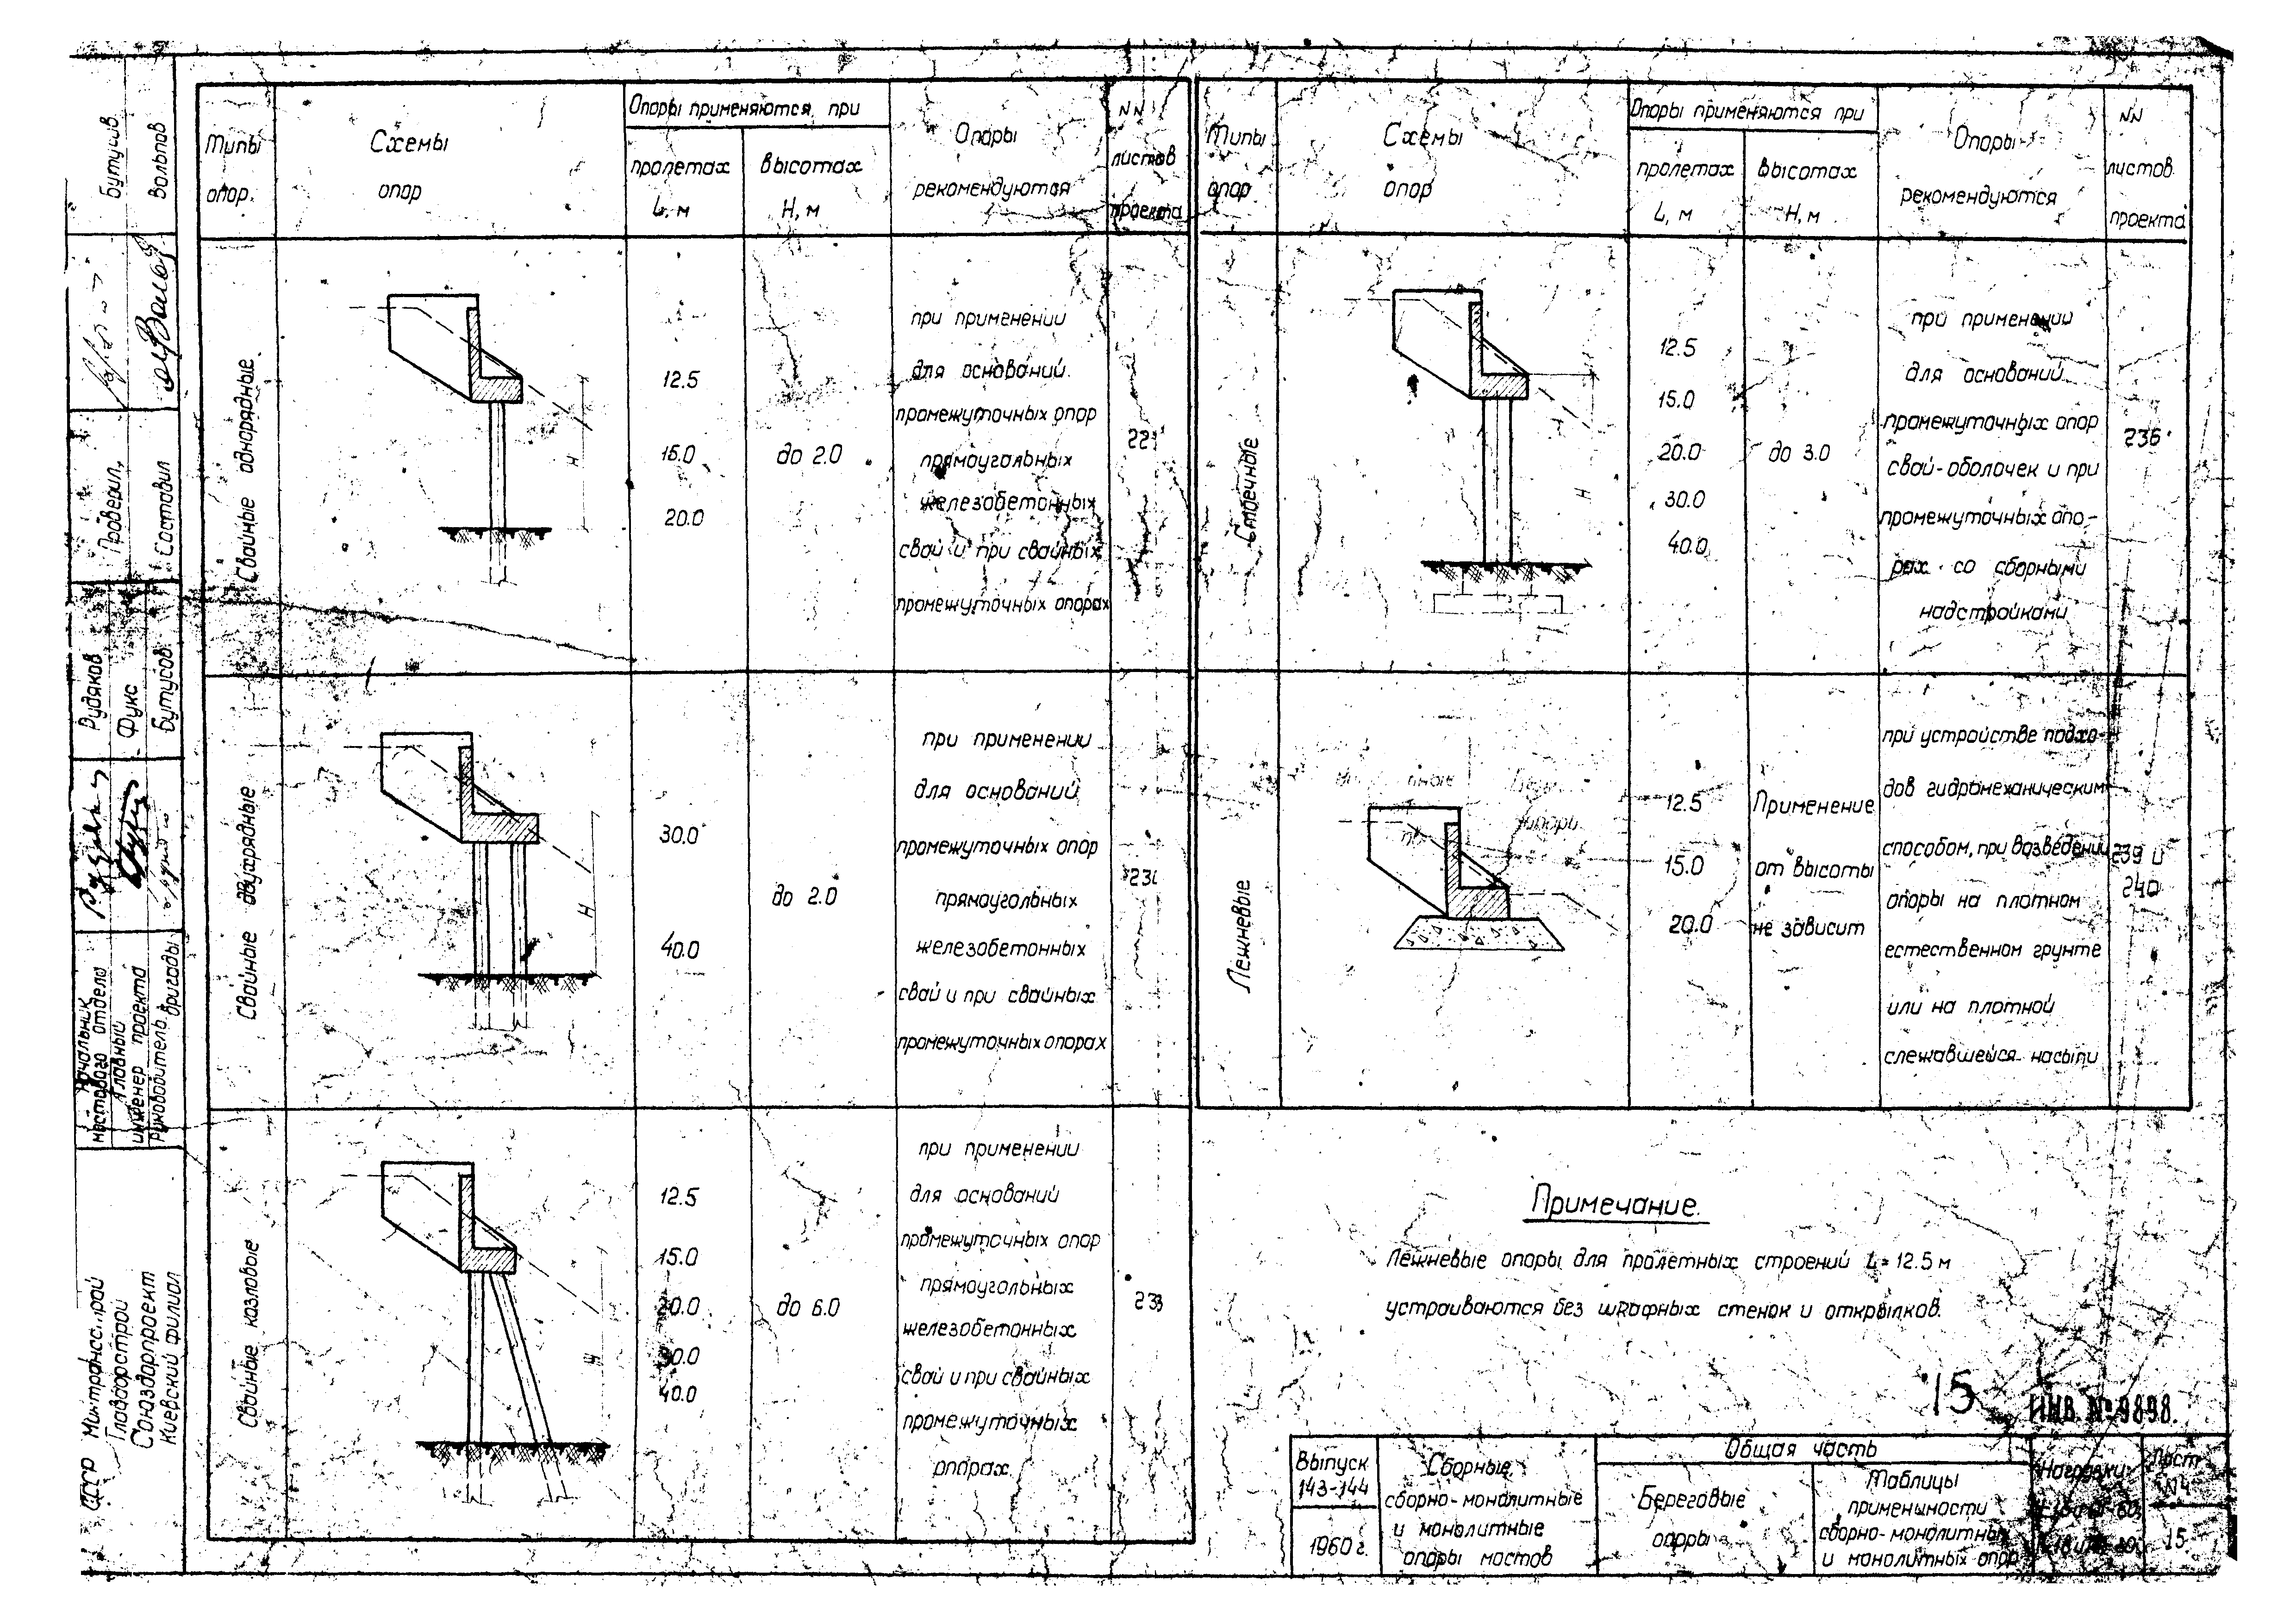 Типы
опор.
Схемы
опор
Опоры применяются при
пролетах
L, м
высотах
H, м
Опоры
рекомендуются
NN
листов
проекта
Свайные однорядные
12.5
15.0
20.0
до 2.0
H
при применении
для оснований
промежуточных опор
прямоугольных
железобетонных
свай и при свайных
промежуточных опорах
Свайные двухрядные
30.0
40.0
до 2.0
H
при применении
для оснований
промежуточных опор
прямоугольных
железобетонных
свай и при свайных
промежуточных опорах
Свайные козловые
12.5
15.0
20.0
30.0
40.0
до 6.0
при применении
для оснований
промежуточных опор
прямоугольных
железобетонных
свай и при свайных
промежуточных
опорах
233
Типы
опор
Схемы
опор
Опоры применяются при
пролетах
L, м
высотах
H, м
Опоры
рекомендуются
NN
листов
проекта
Стоечные
12.5
15.0
20.0
30.0
40.0
до 3.0
H
при применении
для оснований
промежуточных опор
свай-оболочек и при
промежуточных опо-
рах со сборными
надстройками
236
Лежневые
12.5
15.0
20.0
Применение
от высоты
не зависит
при устройстве подхо-
дов гидромеханическим
способом, при возведении
опоры на плотном
естественном грунте
или на плотной
слежавшейся насыпи
239 и
240
Примечание.
Лежневые опоры для пролетных строений L=12.5 м
устраиваются без шкафных стенок и открылков.
15
ИНВ. № 9898.
Выпуск
143-144
1960 г.
Сборные,
сборно-монолитные
и монолитные
опоры мостов
Общая часть
Береговые
опоры
Таблицы
применимости
сборно-монолитных
и монолитных опор
Нагрузки
Лист
N
15
Бутусов
Вольпов
Проверил
Составил
Рудяков
Фукс
Бутусов
Начальник
мостового отдела
Главный
инженер проекта
Руководитель
бригады
СССР Минтрансстрой
Главдорстрой
Союздорпроект
Киевский филиал